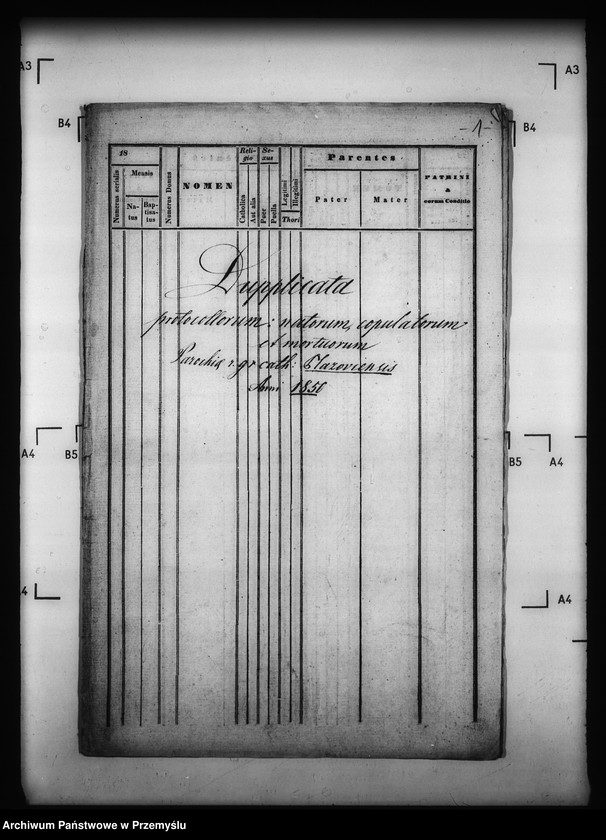 A3
A3
B4
B4
-1-
18
Mensis
Numerus serialis
Na-
tus
Bap-
tisa-
tus
Numerus Domus
NOMEN
Reli-
gio
Catholica
Aut alia
Se-
xus
Puer
Puella
Legitimi
Illegitimi
Thori
Parentes
Pater
Mater
PATRINI
&
eorum Conditio
Dupplicata
protocollorum: natorum, copulatorum
et mortuorum
Parochiæ r. gr. cath:
Anni 1850
A4
B5
B5
A4
4
A4
Archiwum Państwowe w Przemyślu